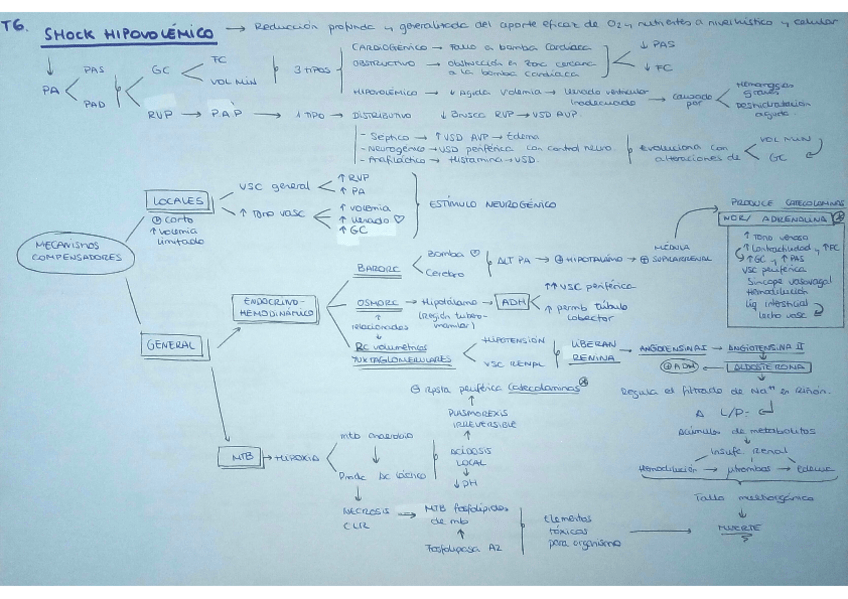 T6. SHOCK HIPOVOLÉMICO → Reducción profunda y generalizada del aporte eficaz de O2 y nutrientes a nivel tisular y celular
PA
PAS
PAD
GC
FC
VOL MIN
3 TIPOS
CARDIOGÉNICO → Fallo a bomba Cardiaca
OBSTRUCTIVO → obstrucción en zona cercana
a la bomba cardiaca
↓ PAS
↓ FC
HIPOVOLÉMICO → ↓ Aguda Volemia → Llenado ventricular
inadecuado
→ causado
por
Hemorragias
graves
Deshidratación
aguda
RVP → PAP → 1 TIPO → DISTRIBUTIVO ↓ Brusca RVP → VSD AVP
- Séptico → ↑ VSD AVP → Edema
- Neurogénico → VSD periférica con control neuro
- Anafiláctico → Histamina → VSD.
Evoluciona con
alteraciones de
VOL MIN
GC
MECANISMOS
COMPENSADORES
LOCALES
corto
↑ volemia
limitado
VSC general
↑ RVP
↑ PA
↑ Tono vasc
↑ volemia
↑ llenado ♡
↑ GC
ESTÍMULO NEUROGÉNICO
GENERAL
ENDOCRINO-
HEMODINÁMICO
BARORC
Bomba ♡
Cerebro
ALT PA → ⊕ HIPOTÁLAMO → ⊕
MÉDULA
SUPRARRENAL
PRODUCE CATECOLAMINAS
NOR/ ADRENALINA
↑ Tono venoso
↑ Contractilidad y ↑ FC
↑ GC y ↑ PAS
VSC periférica
Síncope vasovagal
Hemodilución
Liq intersticial
lecho vasc
OSMORC → Hipotálamo → ADH
(Región tubero-
mamilar)
↑↑ VSC periférica
↑ permb túbulo
colector
relacionados
RC volumétricos
YUXTAGLOMERULARES
HIPOTENSIÓN
VSC RENAL
LIBERAN
RENINA
→ ANGIOTENSINA I → ANGIOTENSINA II
ALDOSTERONA
⊕ ADH
Regula el filtrado de Na+ en riñón.
A L/P:
Acúmulos de metabolitos
Insufc Renal
Hemodilución → μtrombos → Edemas
Fallo multiorgánico
MUERTE
MTB → HIPOXIA
mtb anaerobio
Produc Ac láctico
⊖ rpsta periférica catecolaminas
IRREVERSIBLE
ACIDOSIS
LOCAL
↓ pH
NECROSIS
CLR
→ MTB fosfolípidos
de mb
Fosfolipasa A2
elementos
tóxicos
para organismo